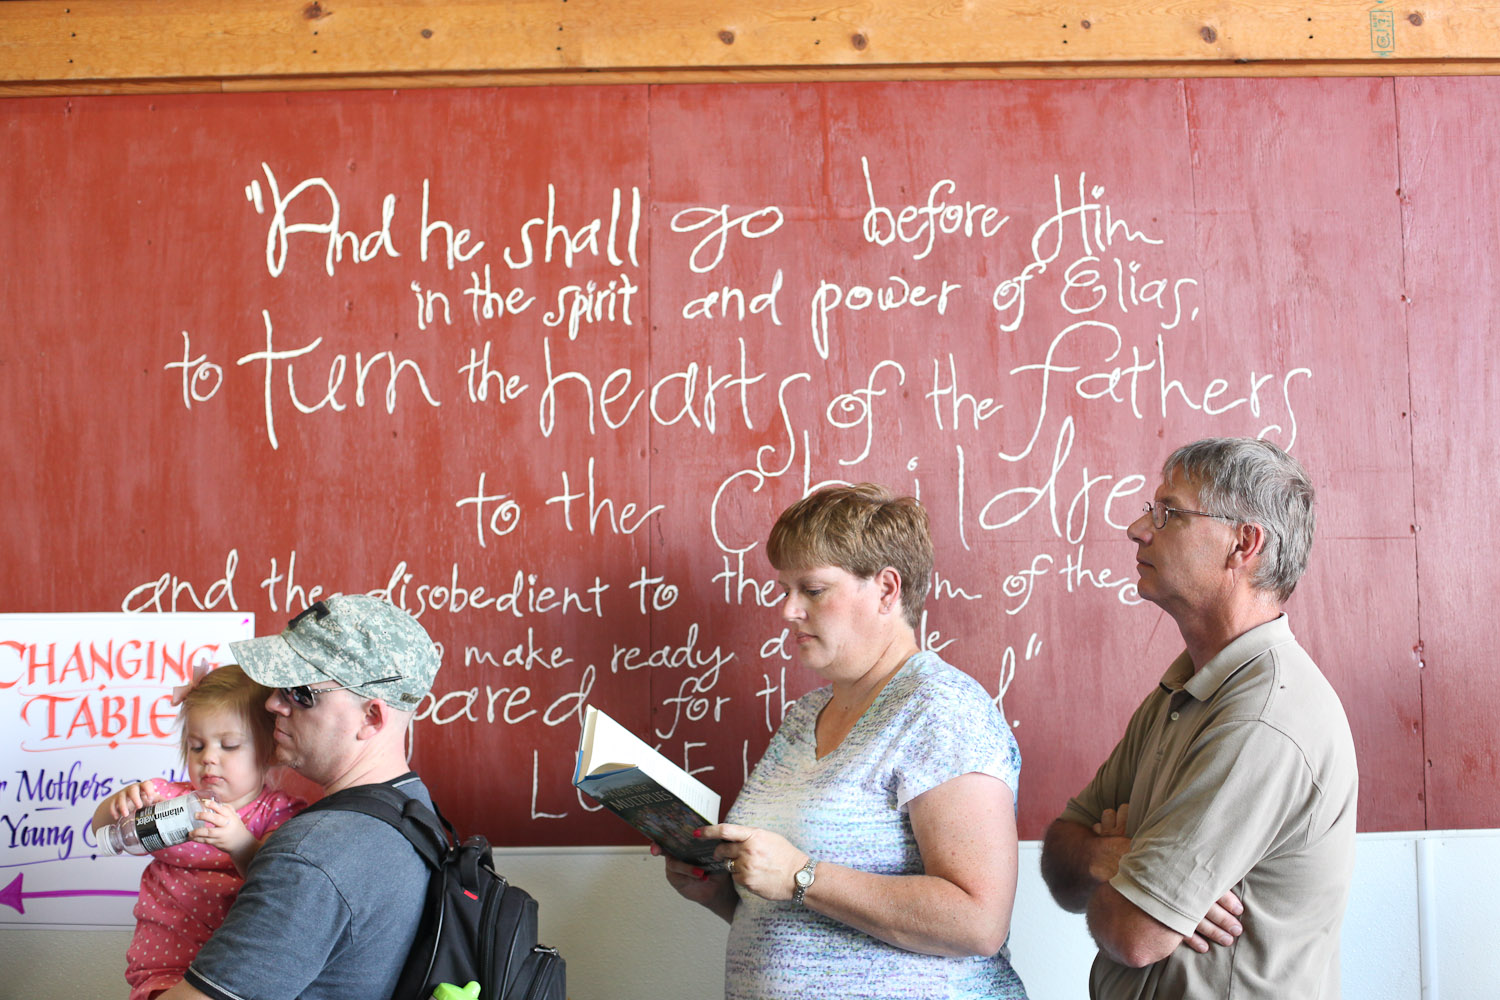 "And he shall go before Him
in the spirit and power of Elias,
to turn the hearts of the fathers
to the Childre
and the disobedient to the of the
make ready a
pared for
CHANGING
TABLE
Mothers
Young
vitaminwater